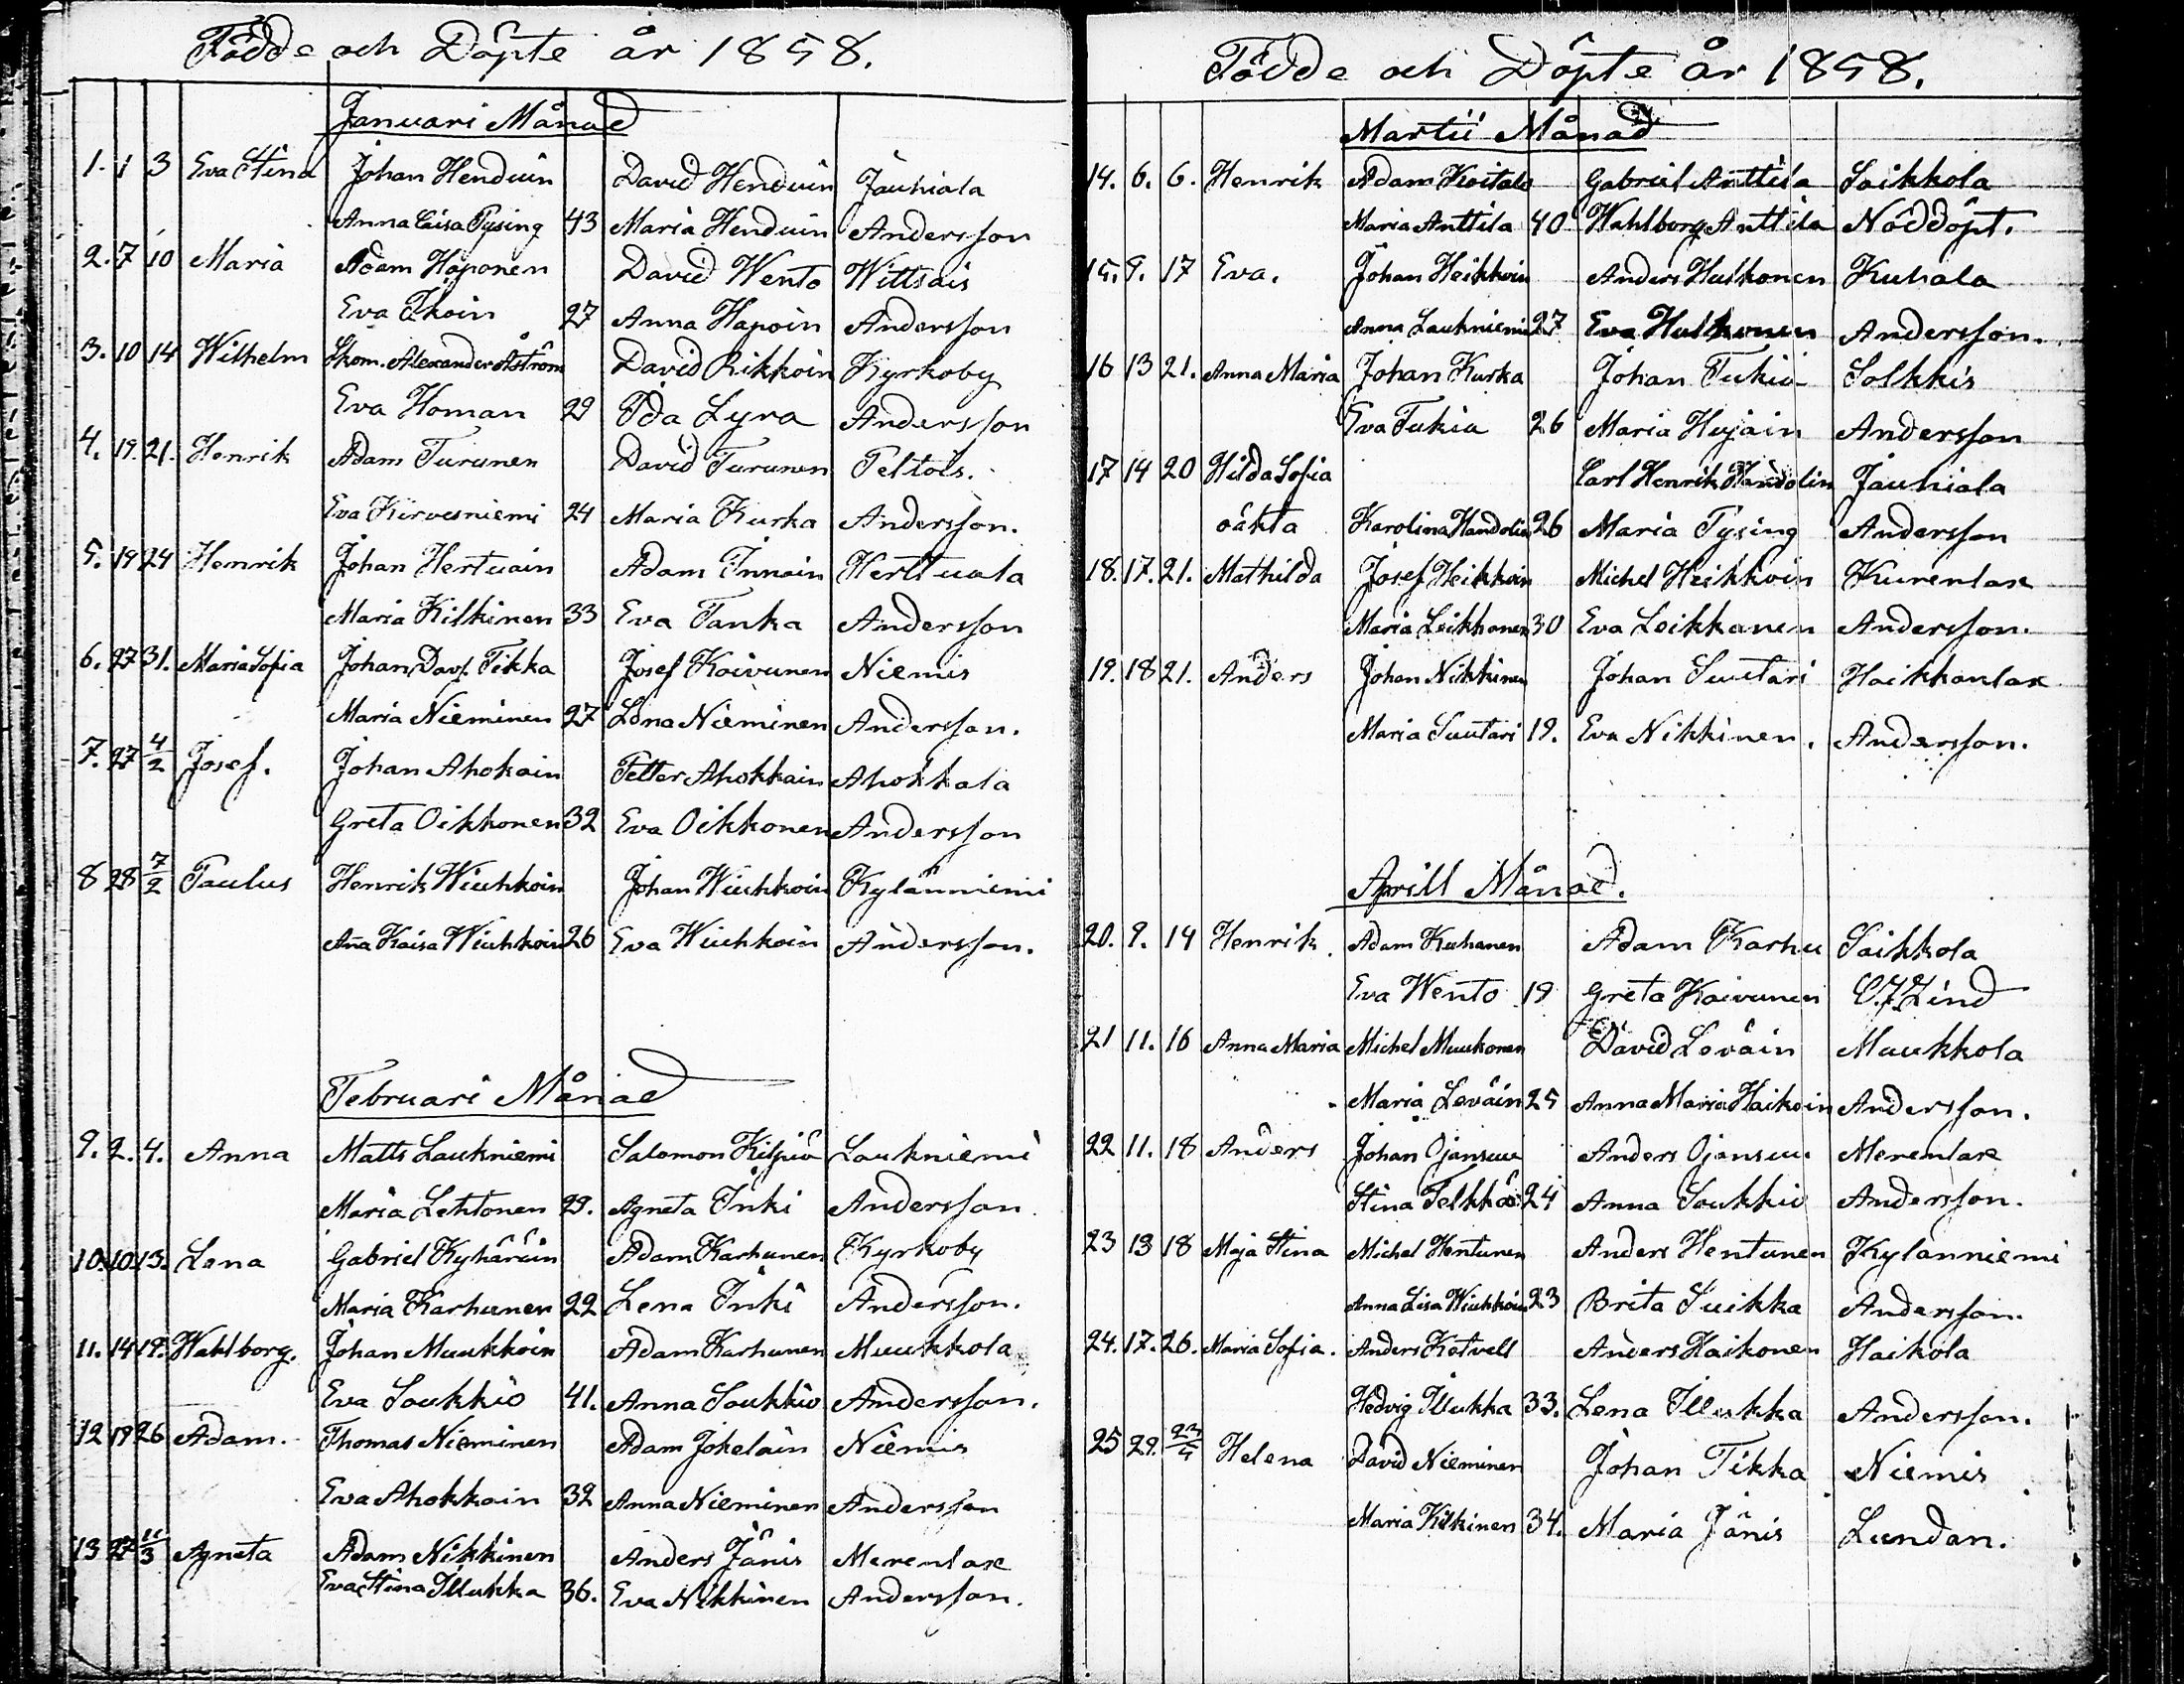 Födde och Döpte år 1858.
Januari Månad
1. 1 3 Eva Stina Johan Henduin David Henduin Jauhiala
Anna Caisa Tysing 43 Maria Henduin Andersson
2. 7 10 Maria Adam Häponen David Wento Wittsais
Eva Ikoin 27 Anna Hapoin Andersson
3. 10 14 Wilhelm Skom. Alexander Åström David Rikkoin Kyrkoby
Eva Homan 29 Ida Lyra Andersson
4. 19. 21. Henrik Adam Turunen David Turunen Peltois.
Eva Kirvesniemi 24 Maria Kurka Andersson.
5. 19 24 Henrik Johan Hertuain Adam Innain Herttuala
Maria Kilkinen 33 Eva Tanka Andersson
6. 27 31. Maria Sofia Johan Davs. Tikka Josef Koivunen Niemis
Maria Nieminen 27 Lena Nieminen Andersson.
7. 27 4/2 Josef. Johan Ahokain Petter Ahokkain Ahokkala
Greta Oikkonen 32 Eva Oikkonen Andersson
8 28 7/2 Paulus Henrik Wiuhkoin Johan Wiuhkoin Kylänniemi
Aña Kaisa Wiuhkoin 26 Eva Wiuhkoin Andersson.
Februari Månad
9. 2. 4. Anna Matts Laukniemi Salomon Kilpiö Laukniemi
Maria Lehtonen 29. Agneta Inki Andersson
10. 10. 13. Lena Gabriel Kyhäräin Adam Karhunen Kyrkoby
Maria Karhunen 22 Lena Inki Andersson.
11. 14 19. Wahlborg. Johan Muukkoin Adam Karhunen Muukkola
Eva Soukkio 41. Anna Soukkio Andersson.
12 19 26 Adam. Thomas Nieminen Adam Jokelain Niemis
Eva Ahokkain 32 Anna Nieminen Andersson
13 27 11/3 Agneta Adam Nikkinen Anders Jänis Merenlax
Eva Stina Illukka 36. Eva Nikkinen Andersson.
Födde och Döpte år 1858.
Martii Månad
14. 6. 6. Henrik Adam Koitalo Gabriel Anttila Saikkola
Maria Anttila 40 Wahlborg Anttila Nöddöpt.
15. 9. 17 Eva. Johan Heikkoin Anders Hulkonen Kuhala
Anna Laukniemi 27 Eva Hulkonen Andersson.
16 13 21. Anna Maria Johan Kurka Johan Tukia Solkkis
Eva Tukia 26 Maria Hujain Andersson
17 14 20 Hilda Sofia Carl Henrik Handolin Jauhiala
oäkta Karolina Handolin 26 Maria Tysing Andersson
18. 17. 21. Mathilda Josef Heikkoin Michel Heikkoin Kurenlax
Maria Leikkonen 30 Eva Leikkanen Andersson.
19. 18 21. Anders Johan Nikkinen Johan Suutari Haikkanlax
Maria Suutari 19. Eva Nikkinen. Andersson.
Aprill Månad.
20. 9. 14 Henrik. Adam Kuhanen Adam Karhu Saikkola
Eva Wento 19 Greta Koivunen
21 11. 16 Anna Maria Michel Muukonen David Leväin Muukkola
Maria Leväin 25 Anna Maria Haikoin Andersson.
22 11. 18 Anders Johan Ojansuu Anders Ojansuu Merenlax
Stina 24 Anna Soukkio Andersson.
23 13 18 Maja Stina Michel Hentunen Anders Hentunen Kylänniemi
Anna Lisa Wiuhkoin 23 Brita Suikka Andersson.
24. 17. 26. Maria Sofia. Anders Kotvell Anders Haikonen Haikola
Hedvig Illukka 33. Lena Illukka Andersson.
25 29. 23/5 Helena David Nieminen Johan Tikka Niemis
Maria Kilkinen 34. Maria Jänis Lundan.